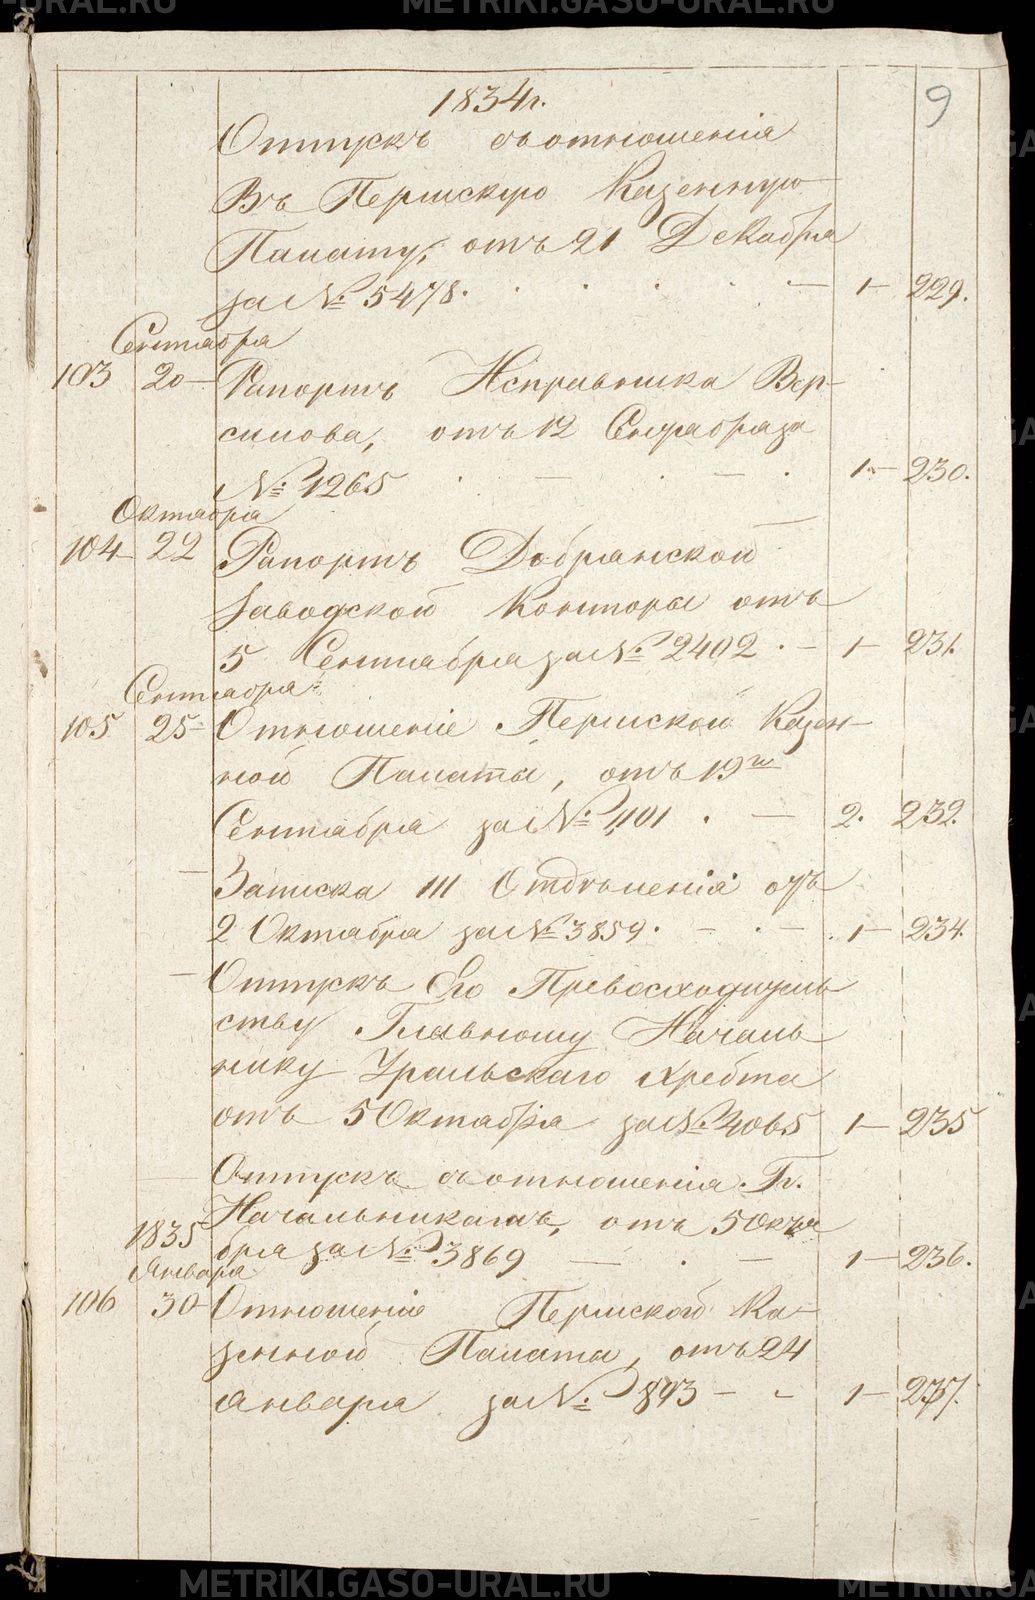 METRIKI.GASO-URAL.RU
9
1834г.
Отпускъ съ отношенія
Въ Пермскую Казенную
Палату, отъ 21 Декабря
за № 5478. 1— 229.
Сентября
103 20— Рапортъ Исправника Вер-
силова, отъ 12 Сентября за
№ 1265 1— 230.
Октября
104— 22 Рапортъ Добрянской
Заводской Конторы отъ
5 Сентября за № 2402. — 1— 231.
Сентября
105 25— Отношеніе Пермской Казен-
ной Палаты, отъ 19го
Сентября за № 1101. — 2. 232.
— Записка III Отдѣленія отъ
2 Октября за № 3859. — 1— 234.
— Отпускъ Его Превосходитель
ству Главному Началь
нику Уральскаго Хребта
отъ 5 Октября за № 4065 1— 235
— Отпускъ съ отношенія Гг.
Начальникамъ, отъ 5 Октя
бря за № 3869 — 1— 236.
1835
Января
106 30— Отношеніе Пермской Ка-
зенной Палаты, отъ 24
Января за № 893 — 1— 237.
METRIKI.GASO-URAL.RU